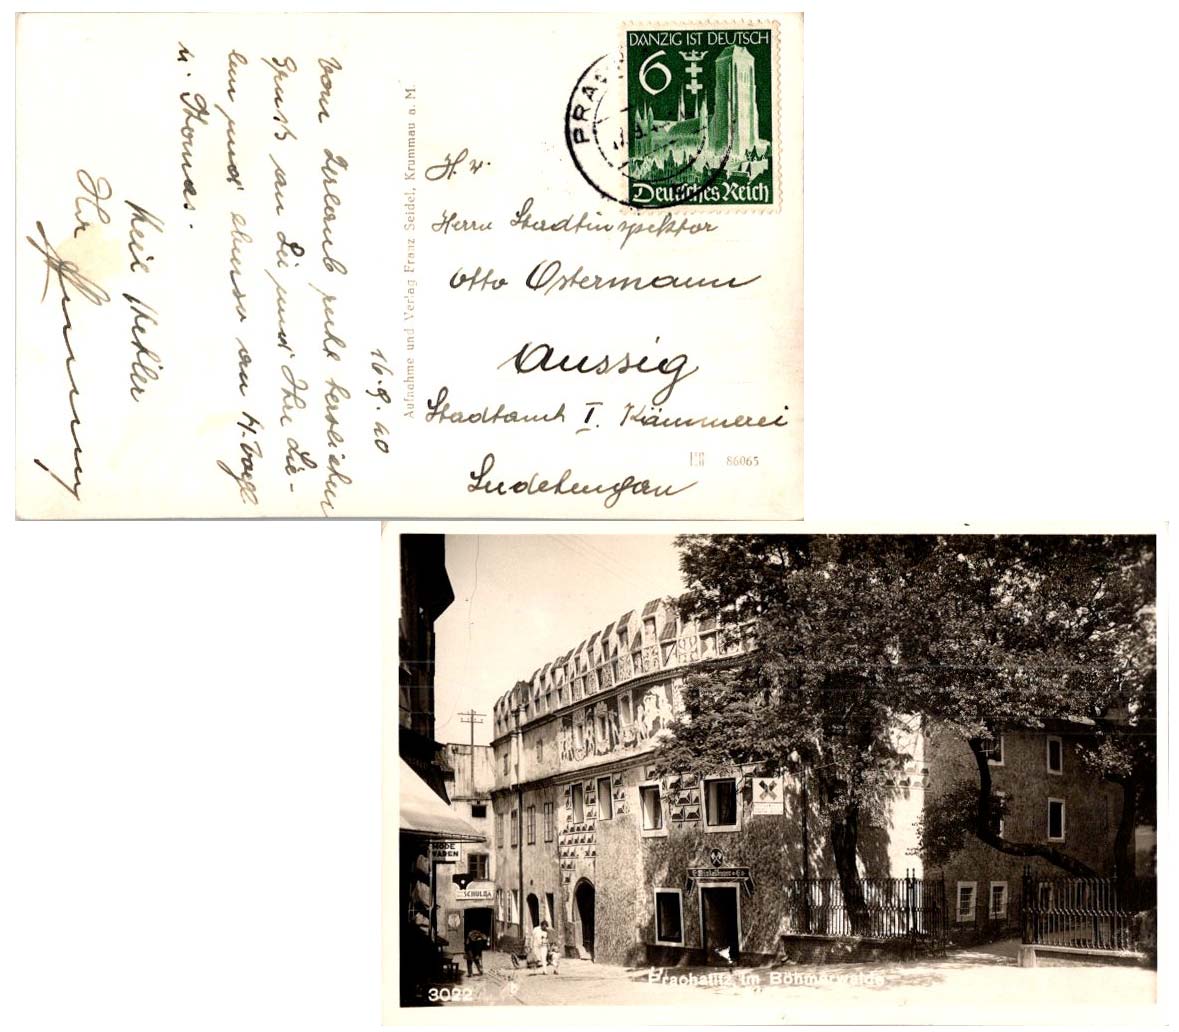 DANZIG IST DEUTSCH
6
Deutsches Reich
PRA
H. v.
Herrn Stadtinspektor
Otto Ostermann
Aussig
Stadtamt I. Kämmerei
Sudetengau
86065
Aufnahme und Verlag Franz Seidel, Krummau a. M.
16.9.40
Vom Urlaub recht herzlichen
Gruß an Sie und Ihre Lie-
ben und ebenso an H. Vogl
u. Thomas.
Heil Hitler
Ihr
MODE
WAREN
SCHUHA
3022
Prachatitz im Böhmerwalde